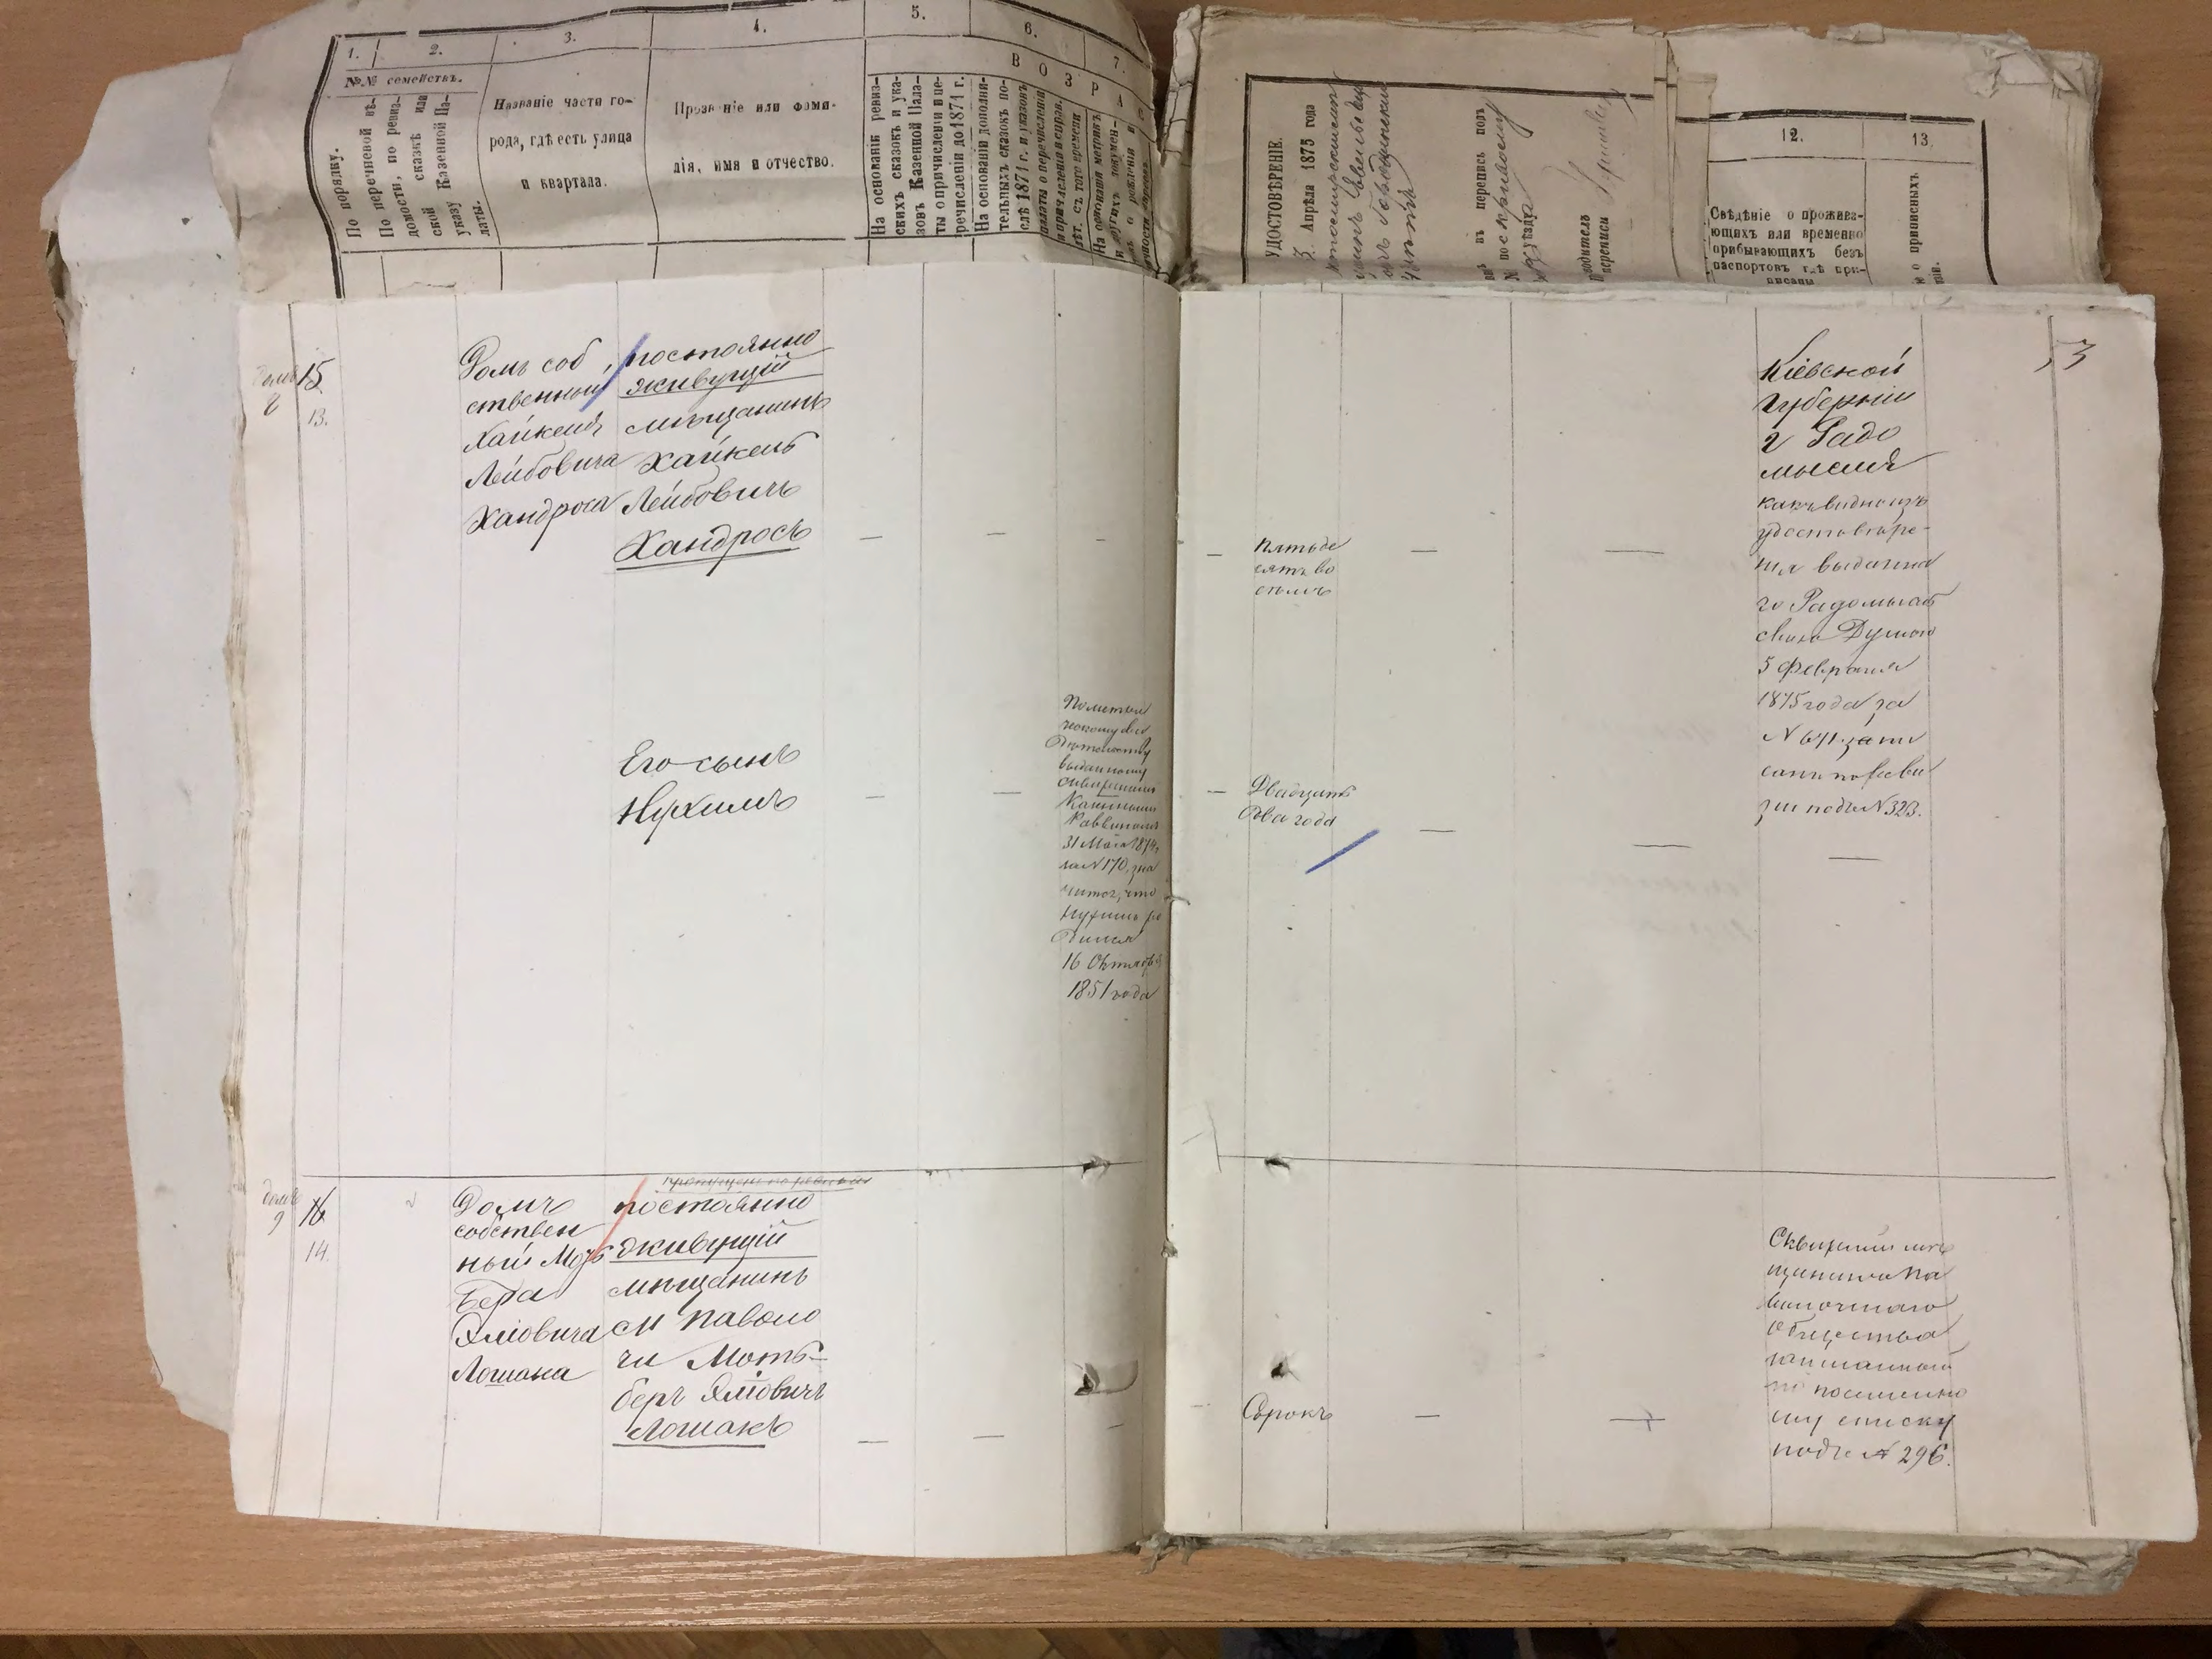 1.
2.
3.
4.
5.
6.
7.
№№ семействъ.
По порядку.
По перечневой вѣ-
домости, по ревиз-
ской сказкѣ или
указу Казенной Па-
латы.
Названіе части го-
рода, гдѣ есть улица
и квартала.
Прозваніе или фами-
лія, имя и отчество.
В О З Р А С
На основаніи ревиз-
скихъ сказокъ и ука-
зовъ Казенной Пала-
ты о причисленіи и пе-
речисленіи до 1871 г.
На основаніи дополни-
тельныхъ сказокъ по-
слѣ 1871 г. и указовъ
палаты о перечисленіи
На основаніи метрикъ
УДОСТОВѢРЕНІЕ.
3. Апрѣля 1875 года
въ перепись подъ
уѣзда
переписи
12.
13.
Свѣдѣніе о прожива-
ющихъ или временно
прибывающихъ безъ
паспортовъ гдѣ при-
писаны
о приписныхъ.
53
домъ
8
15
13.
Домъ соб
ственный
Хайкеля
Лейбовича
Хандроса
постоянно
живущій
мѣщанинъ
Хайкель
Лейбовичъ
Хандросъ
пятьде
сятъ во
семь
Кіевской
Губерніи
г Радо
мысля
какъ видно изъ
удостовѣре-
нія выданна
го Радомысль
скою Думою
5 февраля
1875 года за
N 641 запи
санъ по реви
зіи подъ N 323.
Его сынъ
Нухимъ
По метри
ческому сви
дѣтельству
выданному
сквирскимъ
Казеннымъ
Раввиномъ
31 Мая 1874
за N 170, зна
чится, что
Нухимъ ро
дился
16 Октября
1851 года
Двадцать
два года
домъ
9
16
14.
Домъ
собствен
ный Моть
Бера
Эліовича
Лошака
постоянно
живущій
мѣщанинъ
м Паволо
чи Моть-
беръ Эліовичъ
Лошакъ
Сорокъ
Сквирскій мѣ
щанинъ Па
волочскаго
Общества
записанный
по посемейно
му списку
подъ N 296.